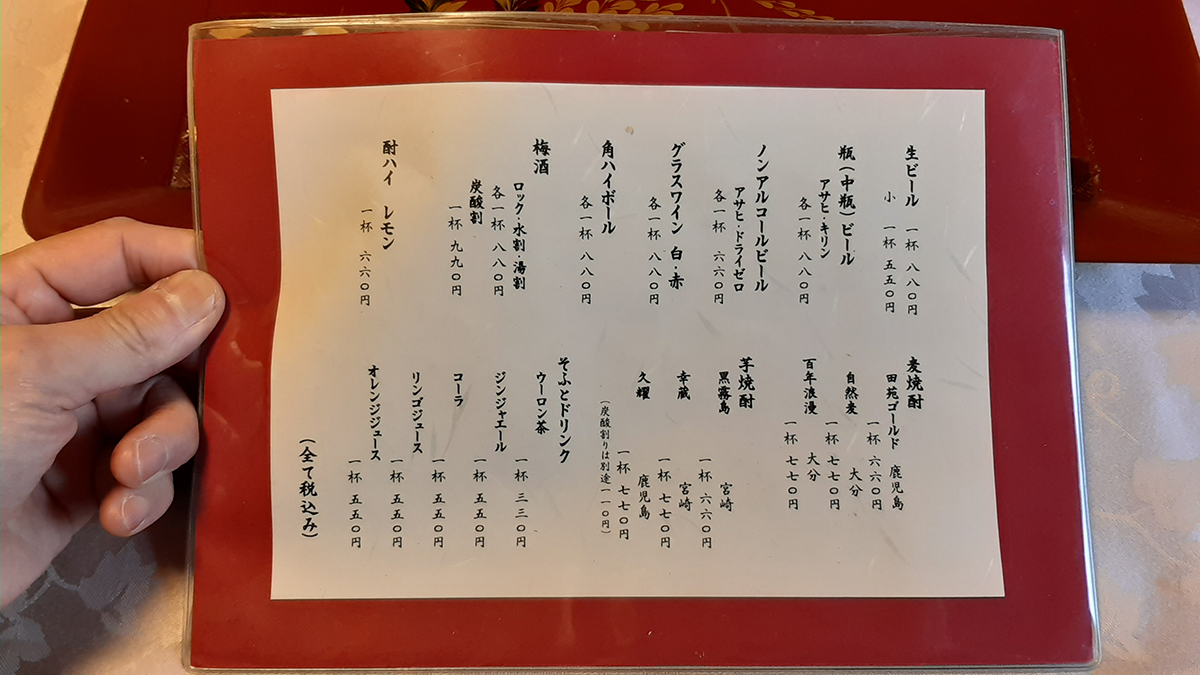 生ビール 一杯 八八〇円
小 一杯 五五〇円
瓶(中瓶)ビール
アサヒ・キリン
各一杯 八八〇円
ノンアルコールビール
アサヒ・ドライゼロ
各一杯 六六〇円
グラスワイン 白・赤
各一杯 八八〇円
角ハイボール
各一杯 八八〇円
梅酒
ロック・水割・湯割
各一杯 八八〇円
炭酸割
一杯 九九〇円
酎ハイ レモン
一杯 六六〇円
麦焼酎
田苑ゴールド 鹿児島
一杯 六六〇円
自然麦 大分
一杯 七七〇円
百年浪漫 大分
一杯 七七〇円
芋焼酎
黒霧島 宮崎
一杯 六六〇円
幸蔵 宮崎
一杯 七七〇円
久耀 鹿児島
一杯 七七〇円
(炭酸割りは別途一一〇円)
そふとドリンク
ウーロン茶
一杯 三三〇円
ジンジャエール
一杯 五五〇円
コーラ
一杯 五五〇円
リンゴジュース
一杯 五五〇円
オレンジジュース
一杯 五五〇円
(全て税込み)